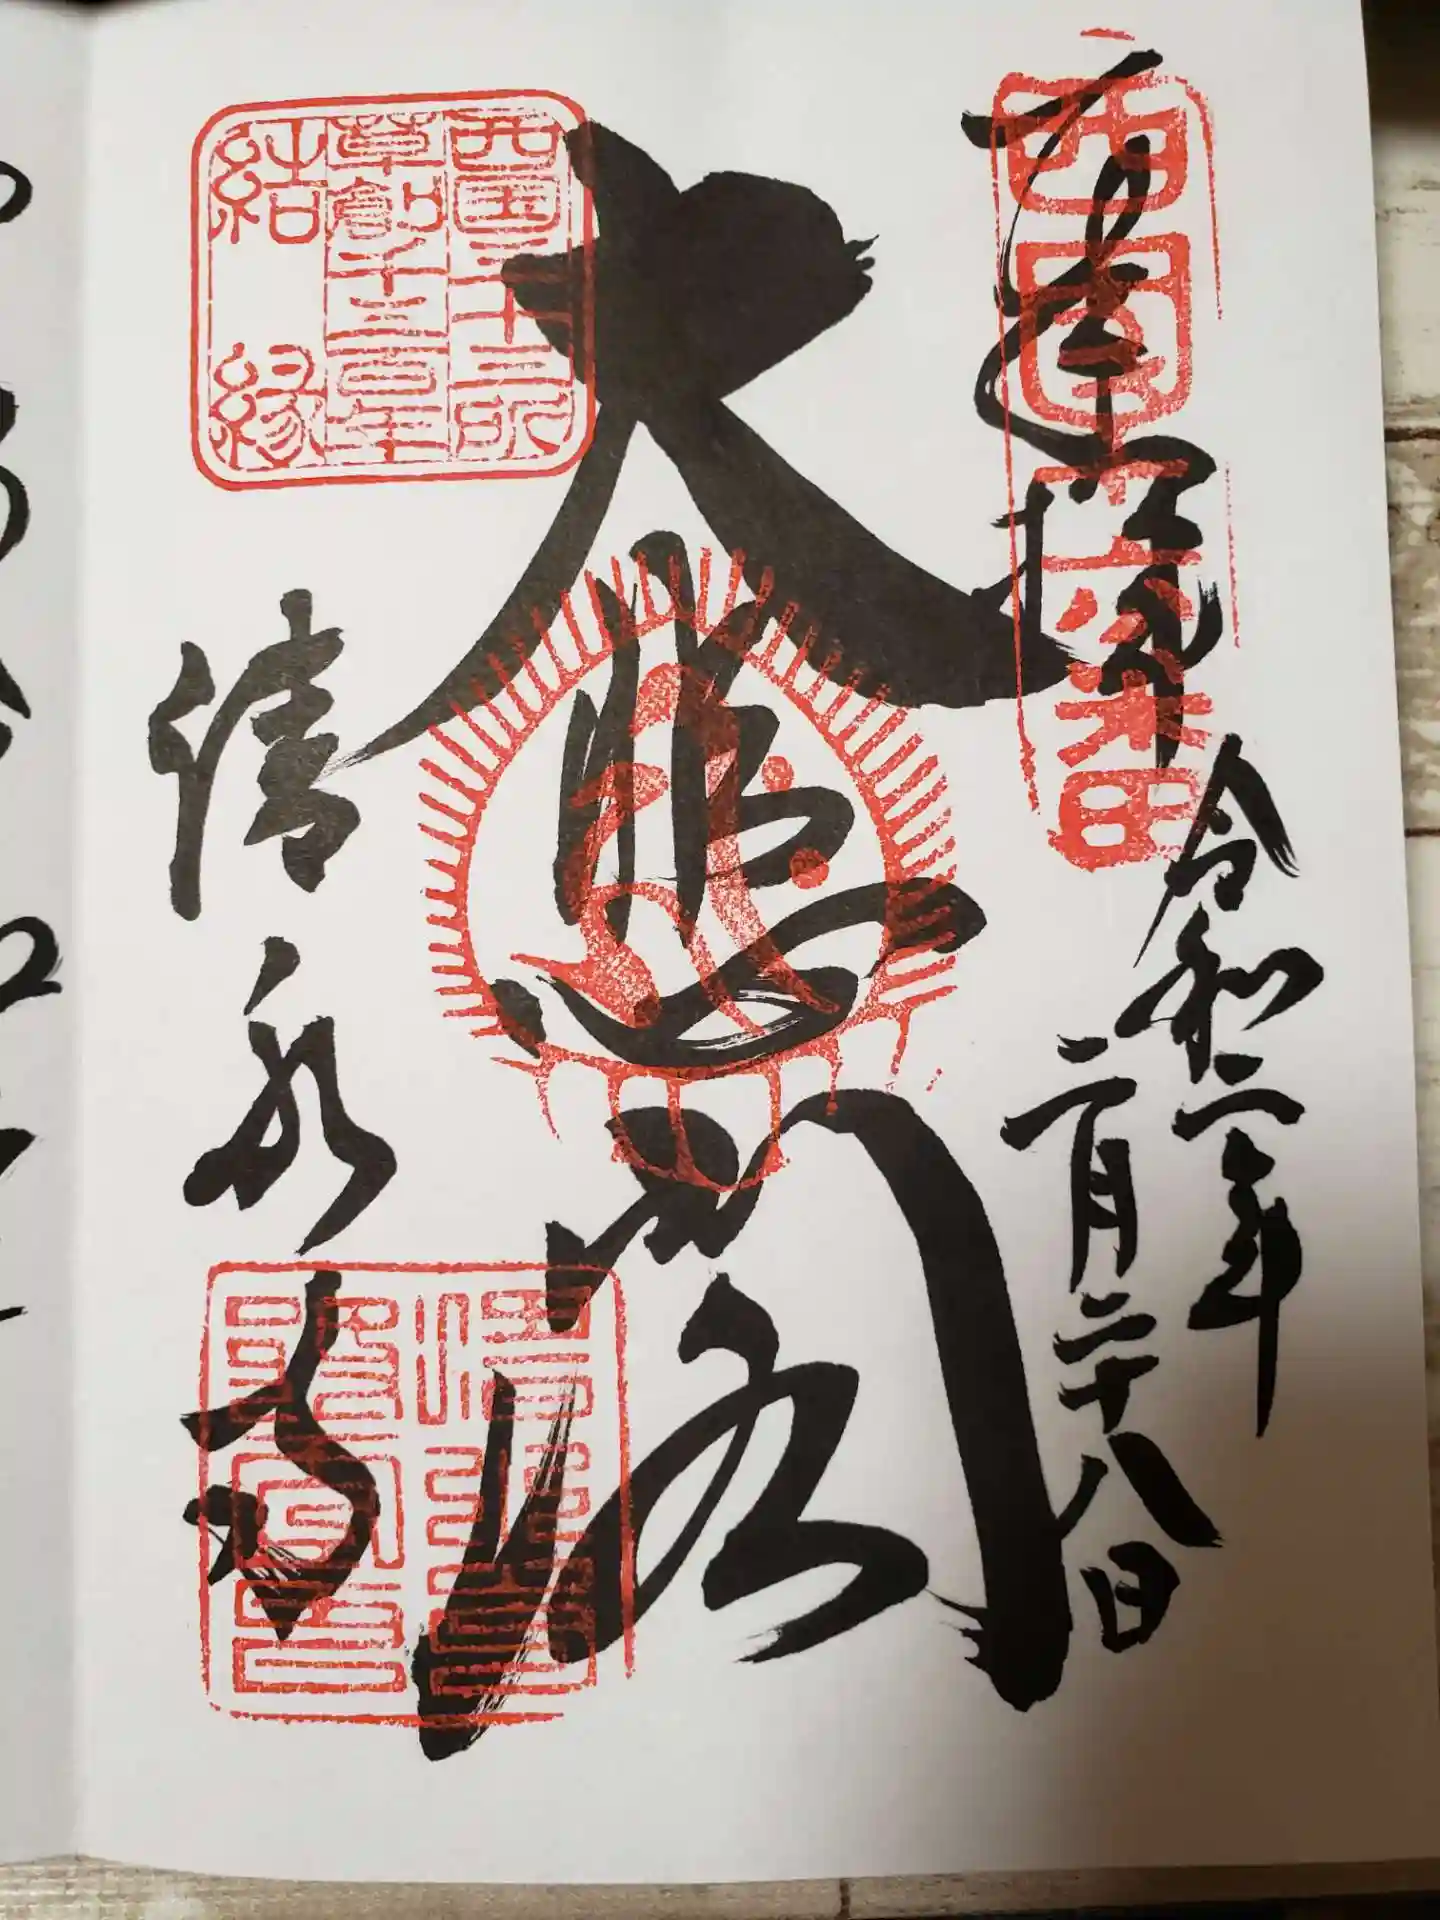 西国十六番
奉拝
令和二年
二月二十八日
大悲閣
西国三十三所
草創千三百年
結縁
清水寺